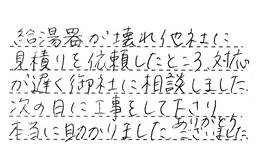 給湯器が壊れ他社に
見積りを依頼したところ、対応
が遅く御社に相談しました。
次の日に工事をして下さり
本当に助かりました ありがとうございました